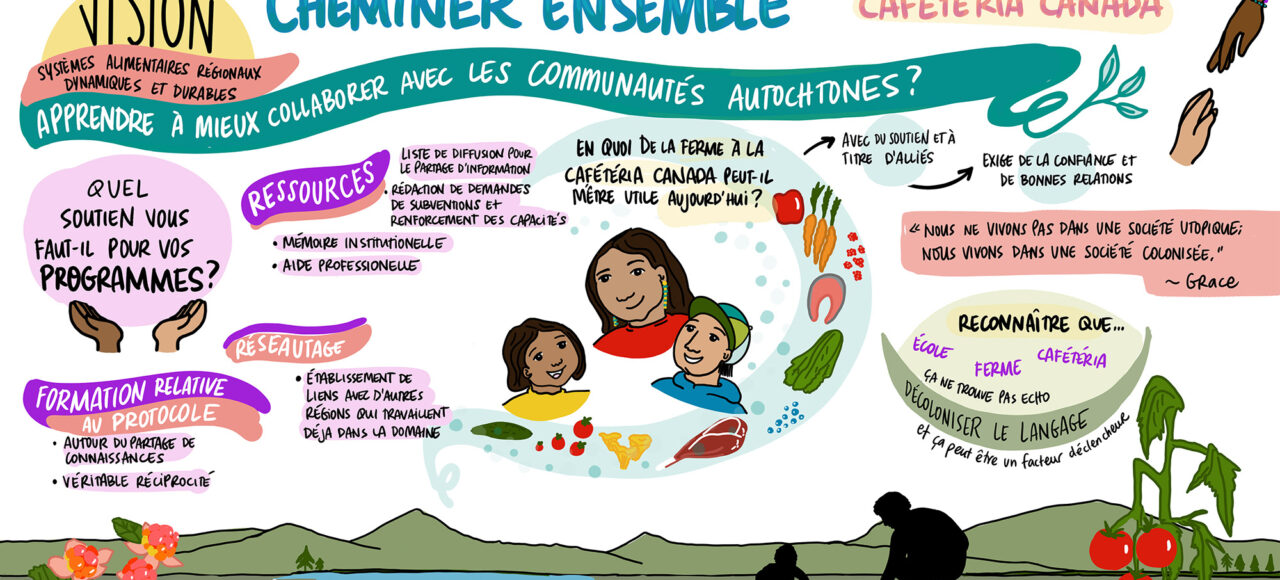 VISION
CHEMINER ENSEMBLE
CAFÉTÉRIA CANADA
SYSTÈMES ALIMENTAIRES RÉGIONAUX
DYNAMIQUES ET DURABLES
APPRENDRE À MIEUX COLLABORER AVEC LES COMMUNAUTÉS AUTOCHTONES?
QUEL
SOUTIEN VOUS
FAUT-IL POUR VOS
PROGRAMMES?
RESSOURCES
LISTE DE DIFFUSION POUR
LE PARTAGE D'INFORMATION
• RÉDACTION DE DEMANDES
DE SUBVENTIONS ET
RENFORCEMENT DES CAPACITÉS
• MÉMOIRE INSTITUTIONELLE
• AIDE PROFESSIONELLE
EN QUOI DE LA FERME À LA
CAFÉTÉRIA CANADA PEUT-IL
M'ÊTRE UTILE AUJOURD'HUI?
AVEC DU SOUTIEN ET À
TITRE D'ALLIÉS
EXIGE DE LA CONFIANCE ET
DE BONNES RELATIONS
« NOUS NE VIVONS PAS DANS UNE SOCIÉTÉ UTOPIQUE;
NOUS VIVONS DANS UNE SOCIÉTÉ COLONISÉE."
~ Grace
FORMATION RELATIVE
AU PROTOCOLE
• AUTOUR DU PARTAGE DE
CONNAISSANCES
• VÉRITABLE RÉCIPROCITÉ
RÉSEAUTAGE
• ÉTABLISSEMENT DE
LIENS AVEZ D'AUTRES
RÉGIONS QUI TRAVAILLENT
DÉJÀ DANS LA DOMAINE
RECONNAÎTRE QUE...
ÉCOLE FERME CAFÉTÉRIA
ÇA NE TROUVE PAS ECHO
DÉCOLONISER LE LANGAGE
et ça peut être un facteur déclencheur